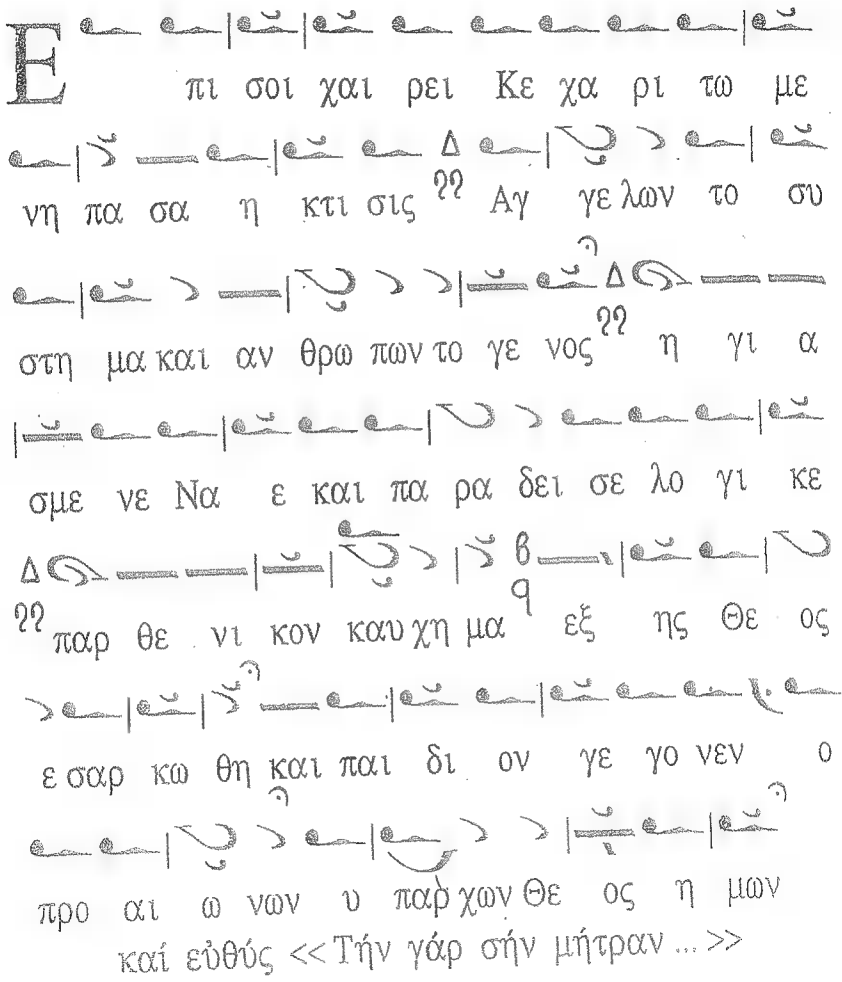 Ε πι σοι χαι ρει Κε χα ρι τω με
νη πα σα η κτι σις Δ Αγ γε λων το συ
στη μα και αν θρω πων το γε νος Δ η γι α
σμε νε Να ε και πα ρα δει σε λο γι κε
Δ παρ θε νι κον καυ χη μα β εξ ης Θε ος
ε σαρ κω θη και παι δι ον γε γο νεν ο
προ αι ω νων υ παρ χων Θε ος η μων
καί εὐθύς << Τήν γάρ σήν μήτραν ... >>